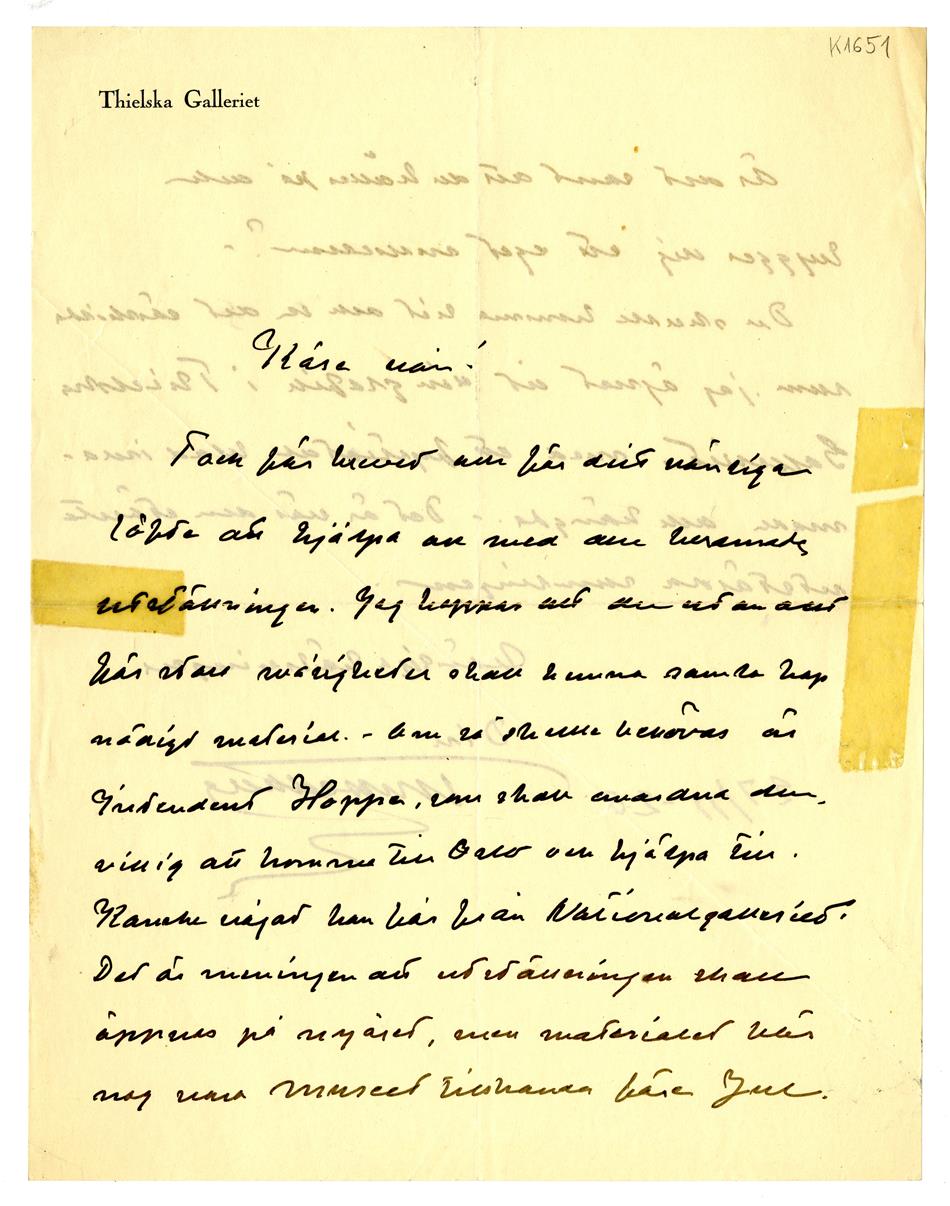 K1651
Thielska Galleriet
Käre vän!
Tack för brevet och för ditt vänliga
löfte att hjälpa oss med den beramade
utställningen. Jag hoppas att du utan allt
för stora svårigheter skall kunna samla hop
nödigt material. - Om så skulle behövas är
Intendent Hoppe, som skall anordna den,
villig att komma till Oslo och hjälpa till.
Kanske något kan fås från Nationalgalleriet?
Det är meningen att utställningen skall
öppnas på nyåret, men materialet bör
nog vara Museet tillhanda före Jul.